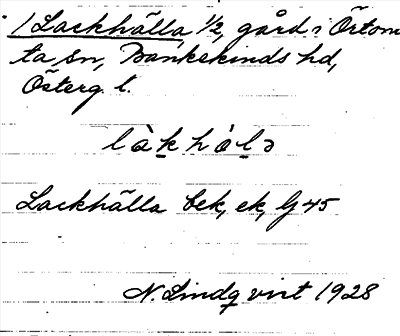 1 Lackhälla 1/2, gård i Örtom
ta sn, Bankekinds hd,
Österg. l.
làk̠hól̠ə
Lackhälla bek, ek, G 45
N. Lindqvist 1928